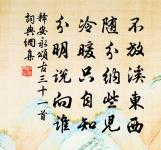 不放溪東西
隨分納些兒
冷暖只自知
分明說向誰
釋安永頌古三十一首
詞典網集